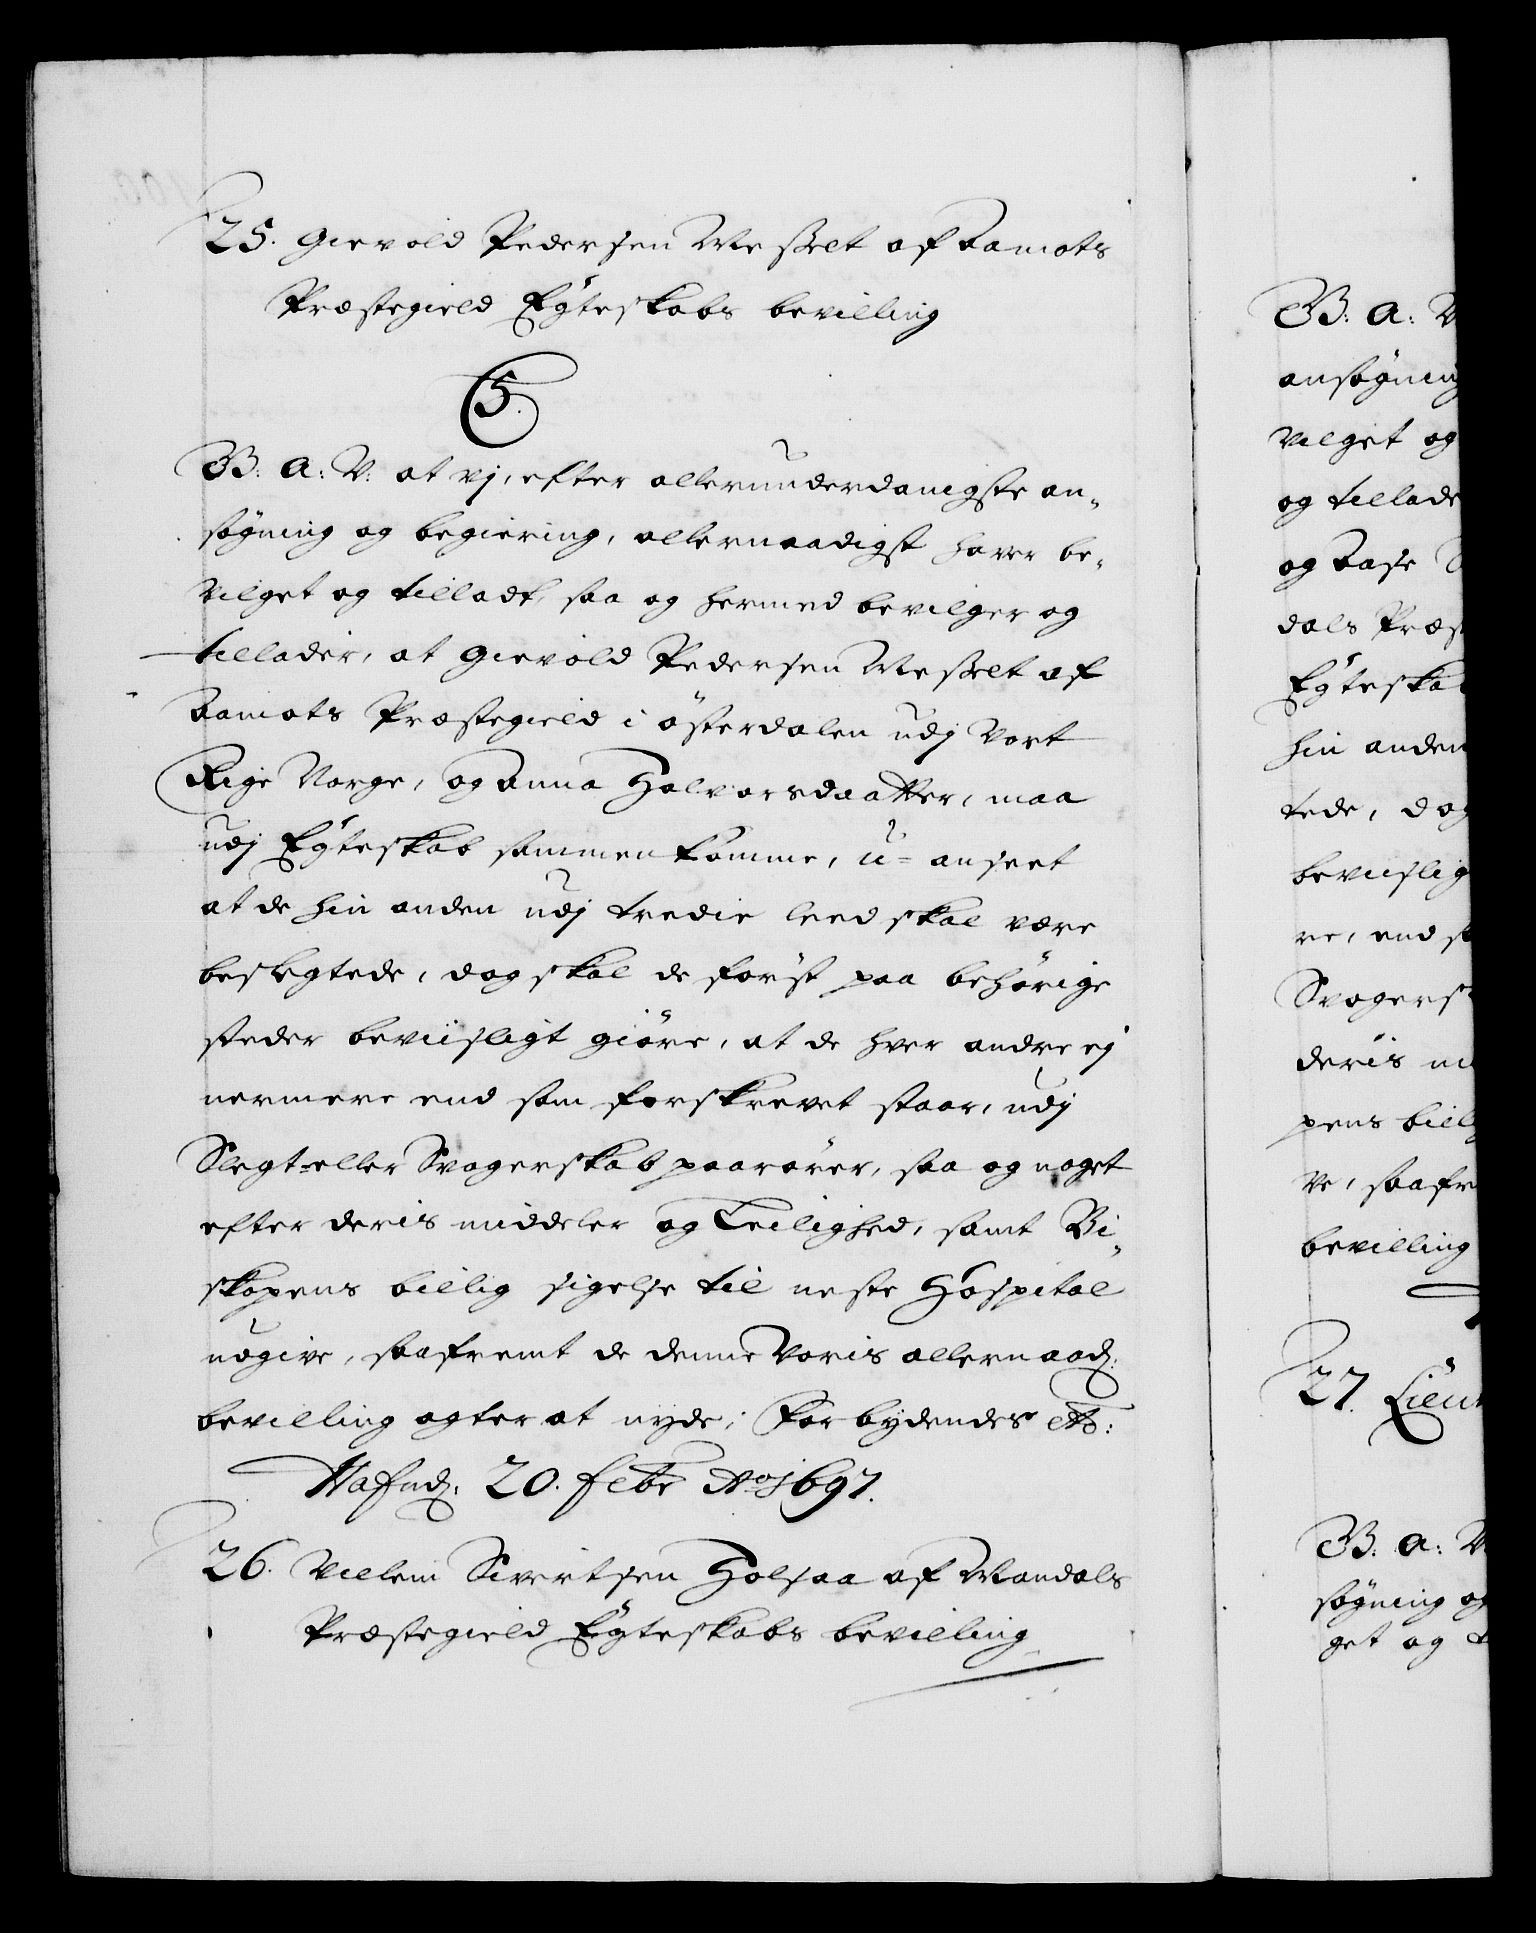 25. Giewold Pedersen Messelt af Aamots
Præstegield Egteskabs bevilling
C5.
B: A: V: at vj, efter allerunderdanigste an„
søgning og begiering, allernaadigst hawer be„
vilget og tilladt, saa og hermed bevilger og
tillader, at Giewold Pedersen Messelt af
Aamots Præstegield i österdalen udj Vort
Rige Norge, og Anna Halvorsdaatter, maa
udj Egteskab sammenkomme, u-anseet
at de hin anden udj tredie leed skal være
beslegtede, dog skal de först paa behörige
steder beviisligt giöre, at de hver andre ej
nermere end som forskrevet staar, udj
Slegt-eller Svogerskab paarörer, saa og noget
efter deris middeler og Leilighed, samt Bi„
skopens billig sigelse til neste Hospital
udgive, saafremt de denne Voris allernaad:
bevilling agter at nyde; Forbydendes etc:
Hafnd: 20. Febr Ao 1697.
26. Villem Sivertsen Holsaa af Mandals
Præstegield Egteskabs bevilling
B: A: V
ansøgning
vilget og
og tillade
og Aase
dals Præs
Egteskab
hin anden
tede, dog
beviislig
re, end s
Svogersk
deris mi
pens bill
ve, saafre
bevilling
27. Lieut
B: A: V
søgning og
get og t